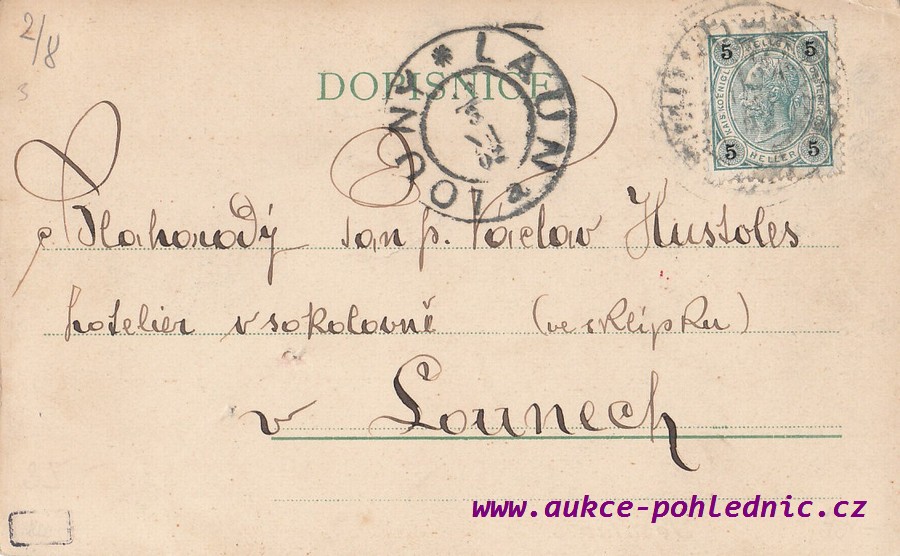 2/8
DOPISNICE
LAUN * LOUNY
5 HELLER 5
5 HELLER 5
Blahorodý pan p. Václav Hustoles
hotelier v sokolovně (ve sklípku)
v Lounech
www.aukce-pohlednic.cz